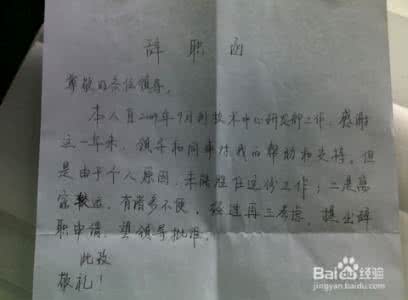 辞职函
尊敬的各位领导:
本人自2009年9月到技术中心研发部工作,感谢
这一年来,领导和同事对我的帮助和支持,但
是由于个人原因,未能胜任这份工作;二是离
家较远,有诸多不便,经过再三考虑,提出辞
职申请,望领导批准。
此致
敬礼!
Baidu经验
jingyan.baidu.com